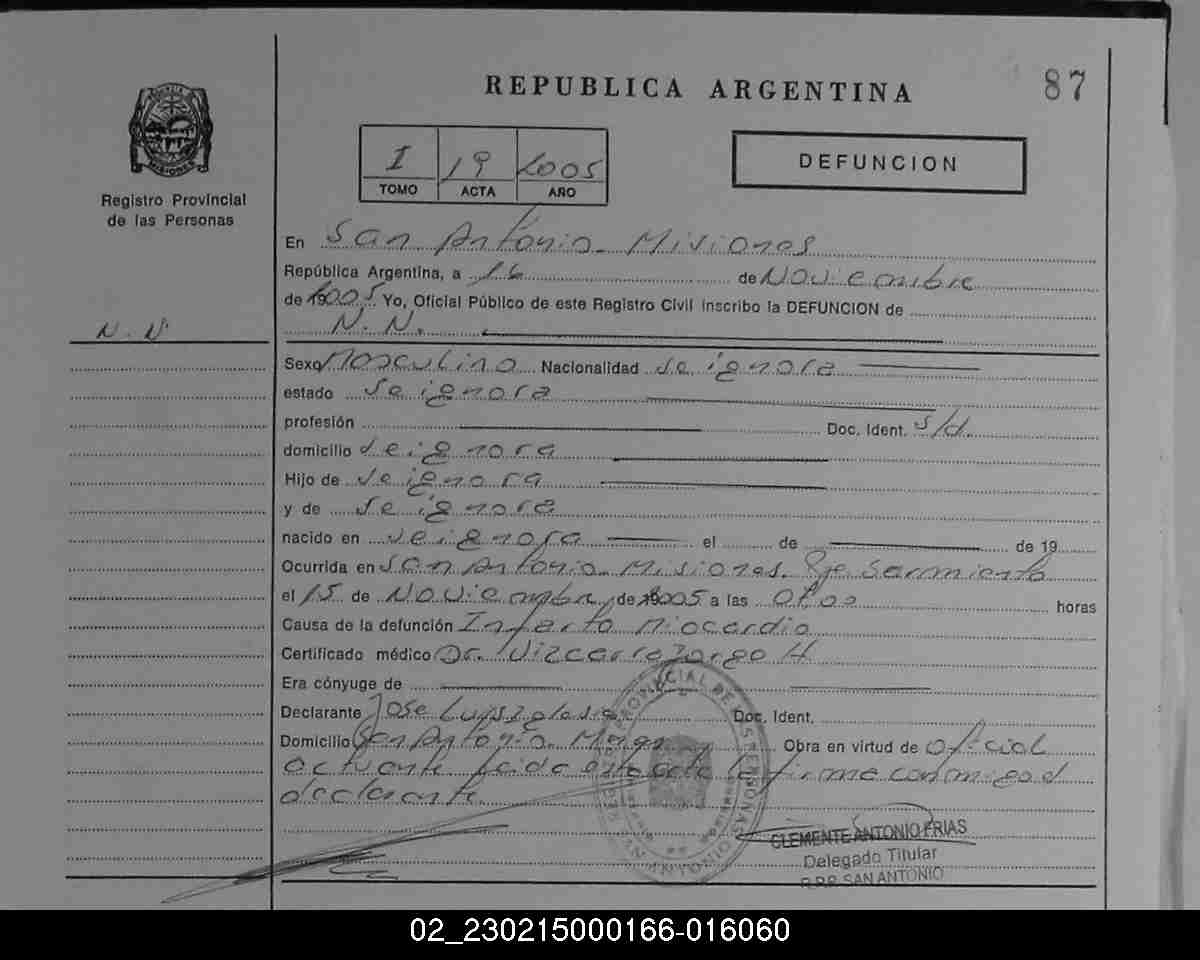 REPUBLICA ARGENTINA
87
I 19 2005
TOMO ACTA AÑO
DEFUNCION
MISIONES
Registro Provincial
de las Personas
En San Antonio Misiones
República Argentina, a 16 de Noviembre
de 2005 Yo, Oficial Público de este Registro Civil inscribo la DEFUNCION de
N. N.
N. N.
Sexo Masculino Nacionalidad se ignora
estado se ignora
profesión Doc. Ident. s/d.
domicilio se ignora
Hijo de se ignora
y de se ignora
nacido en se ignora el de de 19
Ocurrida en San Antonio Misiones. Sarmiento
el 15 de Noviembre de 2005 a las horas
Causa de la defunción Infarto Miocardio
Certificado médico Dr. Vizcarra Jorge H
Era cónyuge de
Declarante Jose Luis Iglesia
Doc. Ident.
Domicilio San Antonio Mnes Obra en virtud de oficial
actuante leida este acta la firma conmigo el
declarante.
CLEMENTE ANTONIO FRIAS
Delegado Titular
R.P.P. SAN ANTONIO
02_230215000166-016060